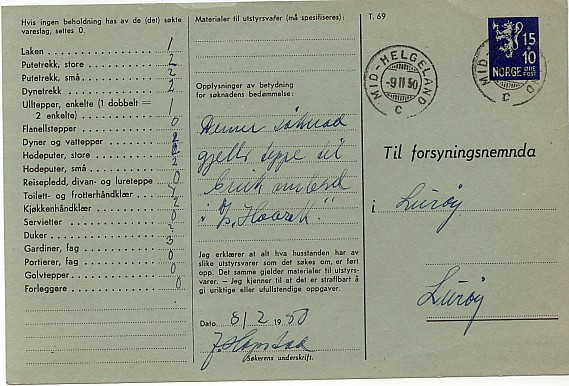 Hvis ingen beholdning has av de (det) søkte
vareslag, settes 0.
Laken 1
Putetrekk, store 2
Putetrekk, små 2
Dynetrekk 2
Ulltepper, enkelte (1 dobbelt =
2 enkelte) 1
Flanellstepper 0
Dyner og vattepper 2
Hodeputer, store 2
Hodeputer, små 2
Reisepledd, divan- og lureteppe 0
Toilett- og frotterhåndklær
Kjøkkenhåndklær 2
Servietter 0
Duker 3
Gardiner, fag 0
Portierer, fag 0
Golvtepper 0
Forleggere 0
Materialer til utstyrsvafer (må spesifiseres):
Opplysninger av betydning
for søknadens bedømmelse:
Denne søknad
gjelder teppe til
bruk ombord
i
Jeg erklærer at alt hva husstanden har av
slike utstyrsvarer som det søkes om, er ført
opp. Det samme gjelder materialer til utstyrs-
varer. — Jeg kjenner til at det er straffbart å
gi uriktige eller ufullstendige oppgaver.
Dato 8/2 1950
Søkerens underskrift.
T. 69
MID-HELGELAND
-9 II 50
C
15
+10
NORGE ØRE
POST
MID
D
C
Til forsyningsnemnda
i Lurøy
Lurøy